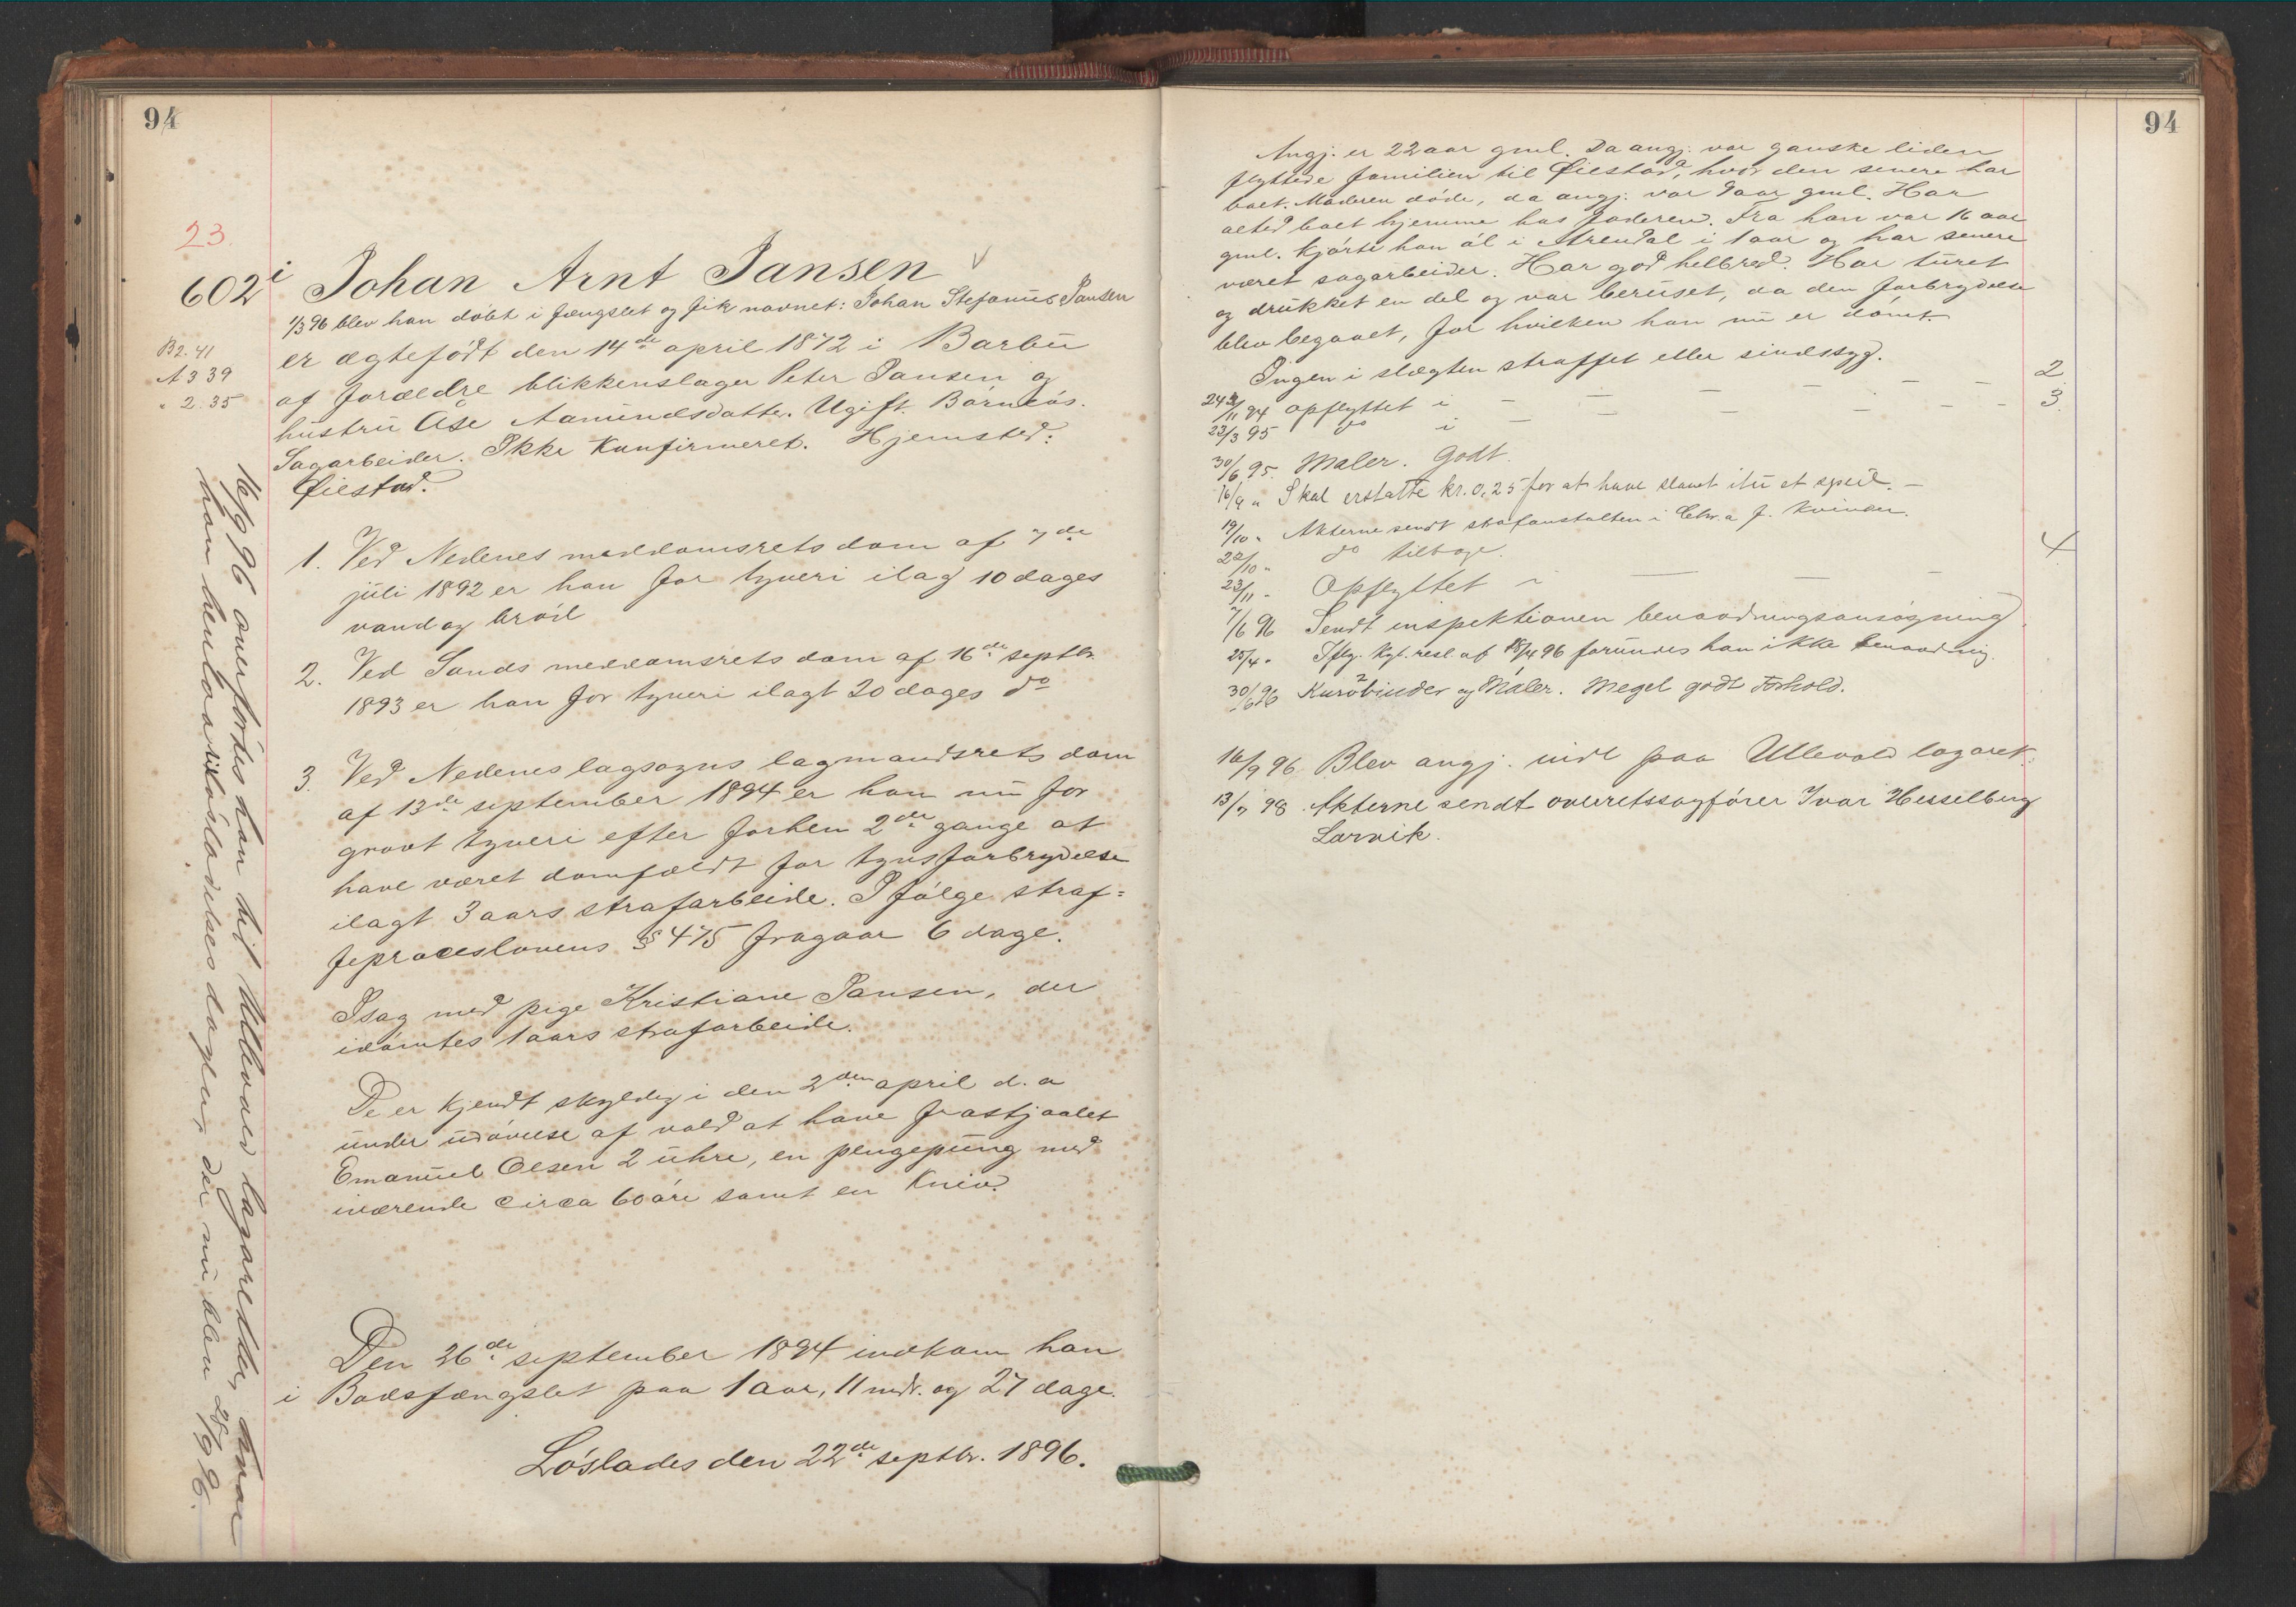 94
23
602 i Johan Arnt Jansen
1/3 96 blev han döbt i fængslet og fik navnet: Johan Stefanus Jansen
B 2. 41
A 3 39
" 2. 35
er ægtefödt den 14de april 1872 i Barbu
af forældre blikkenslager Peter Jansen og
hustru Åse Aamundsdatter. Ugift. Barnlös.
Sagarbeider. Ikke Konfirmeret. Hjemsted:
Öiestad.
1. Ved Nedenes meddomsrets dom af 7de
juli 1892 er han for tyveri ilagt 10 dages
vand og bröd
2. Ved Sands meddomsrets dom af 16de septbr.
1893 er han for tyveri ilagt 20 dages do
3. Ved Nedenes lagsogns lagmandsrets dom
af 13de september 1894 er han nu for
grovt tyveri efter forhen 2de gange at
have været domfældt for tyvsforbrydelse
ilagt 3 aars strafarbeide. I fölge straf=
feproceslovens § 475 fragaar 6 dage.
I sag med pige Kristiane Jansen, der
idömtes 1 aars strafarbeide.
De er kjendt skyldig i den 2den april d. a
under udövelse af vold at have frastjaalet
Emanuel Olsen 2 uhre, en pengepung med
iværende circa 60 öre samt en Kniv.
Den 26de september 1894 indkom han
i Bodsfængslet paa 1 aar, 11 mdr. og 27 dage.
Löslades den 22de septbr. 1896.
16/9 96 overförtes han til Ullevold lazarether, hvor
han henlaa til lösladelsesdagen, der nu blev 28/9 96.
94
Angj. er 22 aar gml. Da angj. var ganske liden
flyttede familien til Öiestad, hvor den senere har
boet. Moderen döde, da angj. var aar gml. Har
altid boet hjemme hos faderen. Fra han var 16 aar
gml. kjörte han öl i Arendal i 1 aar og har senere
været sagarbeider. Har god helbred. Har turet
og drukket en del og var beruset, da den forbrydelse
blev begaaet, for hvilken han nu er dömt.
Ingen i slægten straffet eller sindssyg.
24/11 94 opflyttet i — — — — — 2
23/3 95 do i — — — — — 3.
30/6 95. Maler. Godt.
16/9 " Skal erstatte kr. 0,25 for at have slaaet itu et speil. —
19/10 " Akterne sendt strafanstalten i Chr.a f. Kvinder.
22/10 " do tilbage.
23/11 " Opflyttet i — — — 4
7/6 96 Sendt inspektionen benaadningsansögning.
25/4 " Iflg. kgl. resl. af 18/4 96 forundes han ikke benaadning.
30/6 96 Kurvbinder og Maler. Meget godt Forhold.
16/9 96 Blev angj. indl paa Ullevold lazaret.
13/7 98. Akterne sendt overretssagförer Ivar Hesselberg
Larvik.